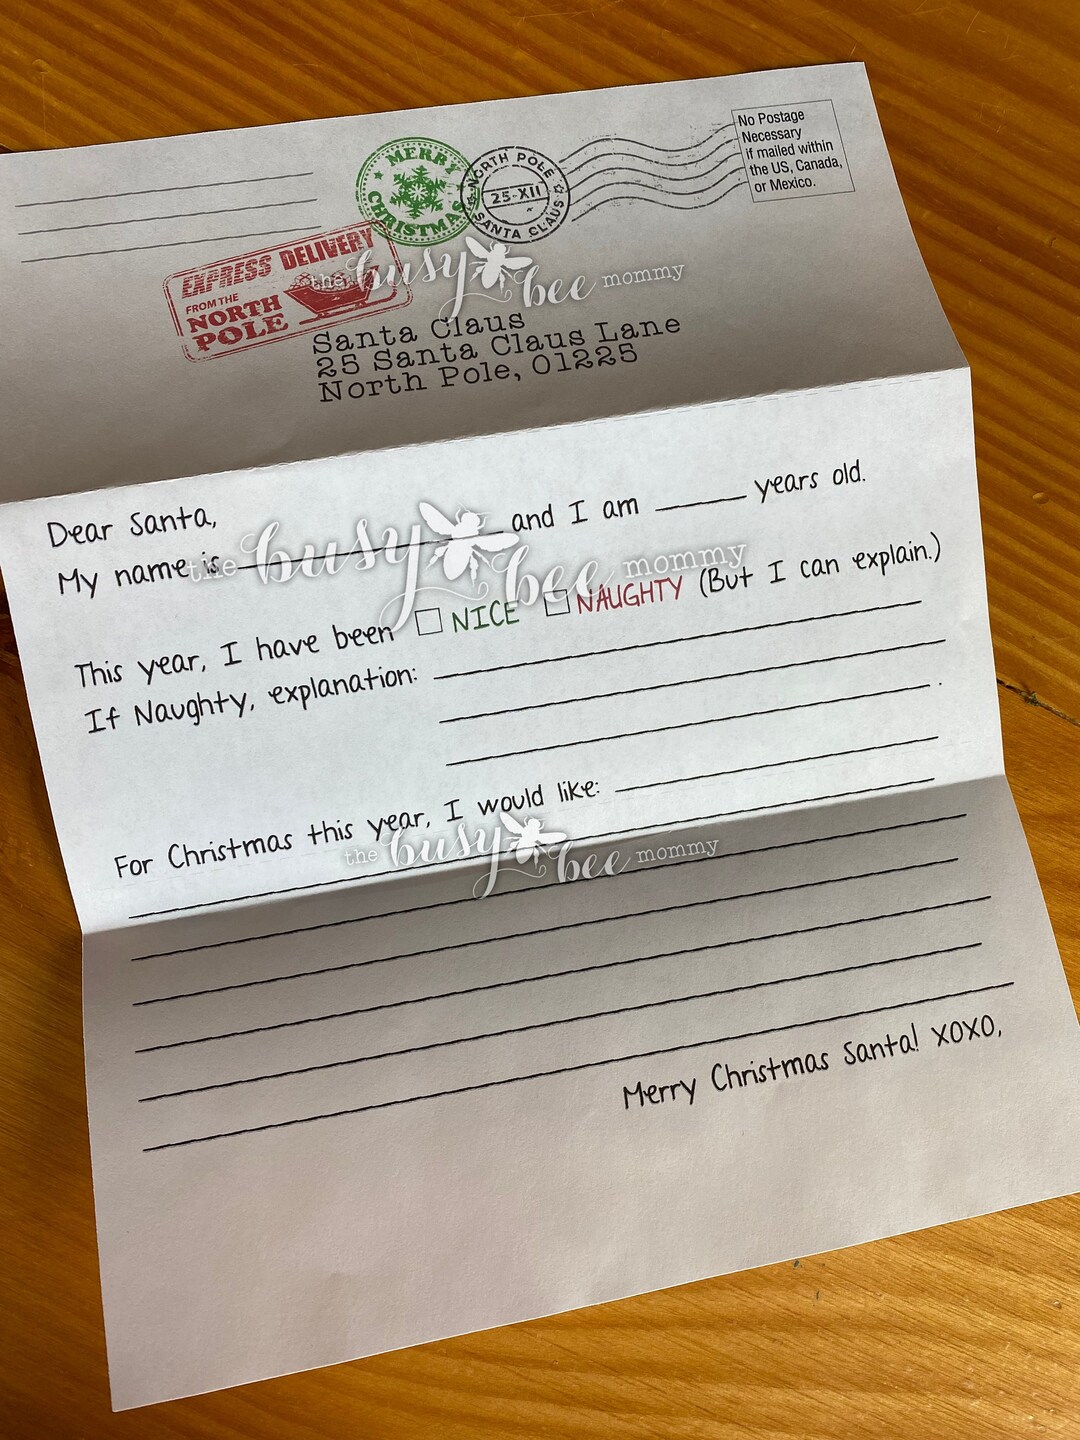 No Postage
Necessary
if mailed within
the US, Canada,
or Mexico.
MERRY
CHRISTMAS
NORTH POLE
25-XII
SANTA CLAUS
EXPRESS DELIVERY
FROM THE
NORTH
POLE
the busy bee mommy
Santa Claus
25 Santa Claus Lane
North Pole, 01225
Dear Santa,
My name is and I am years old.
the busy bee mommy
This year, I have been NICE NAUGHTY (But I can explain.)
If Naughty, explanation: .
For Christmas this year, I would like:
the busy bee mommy
Merry Christmas Santa! XOXO,